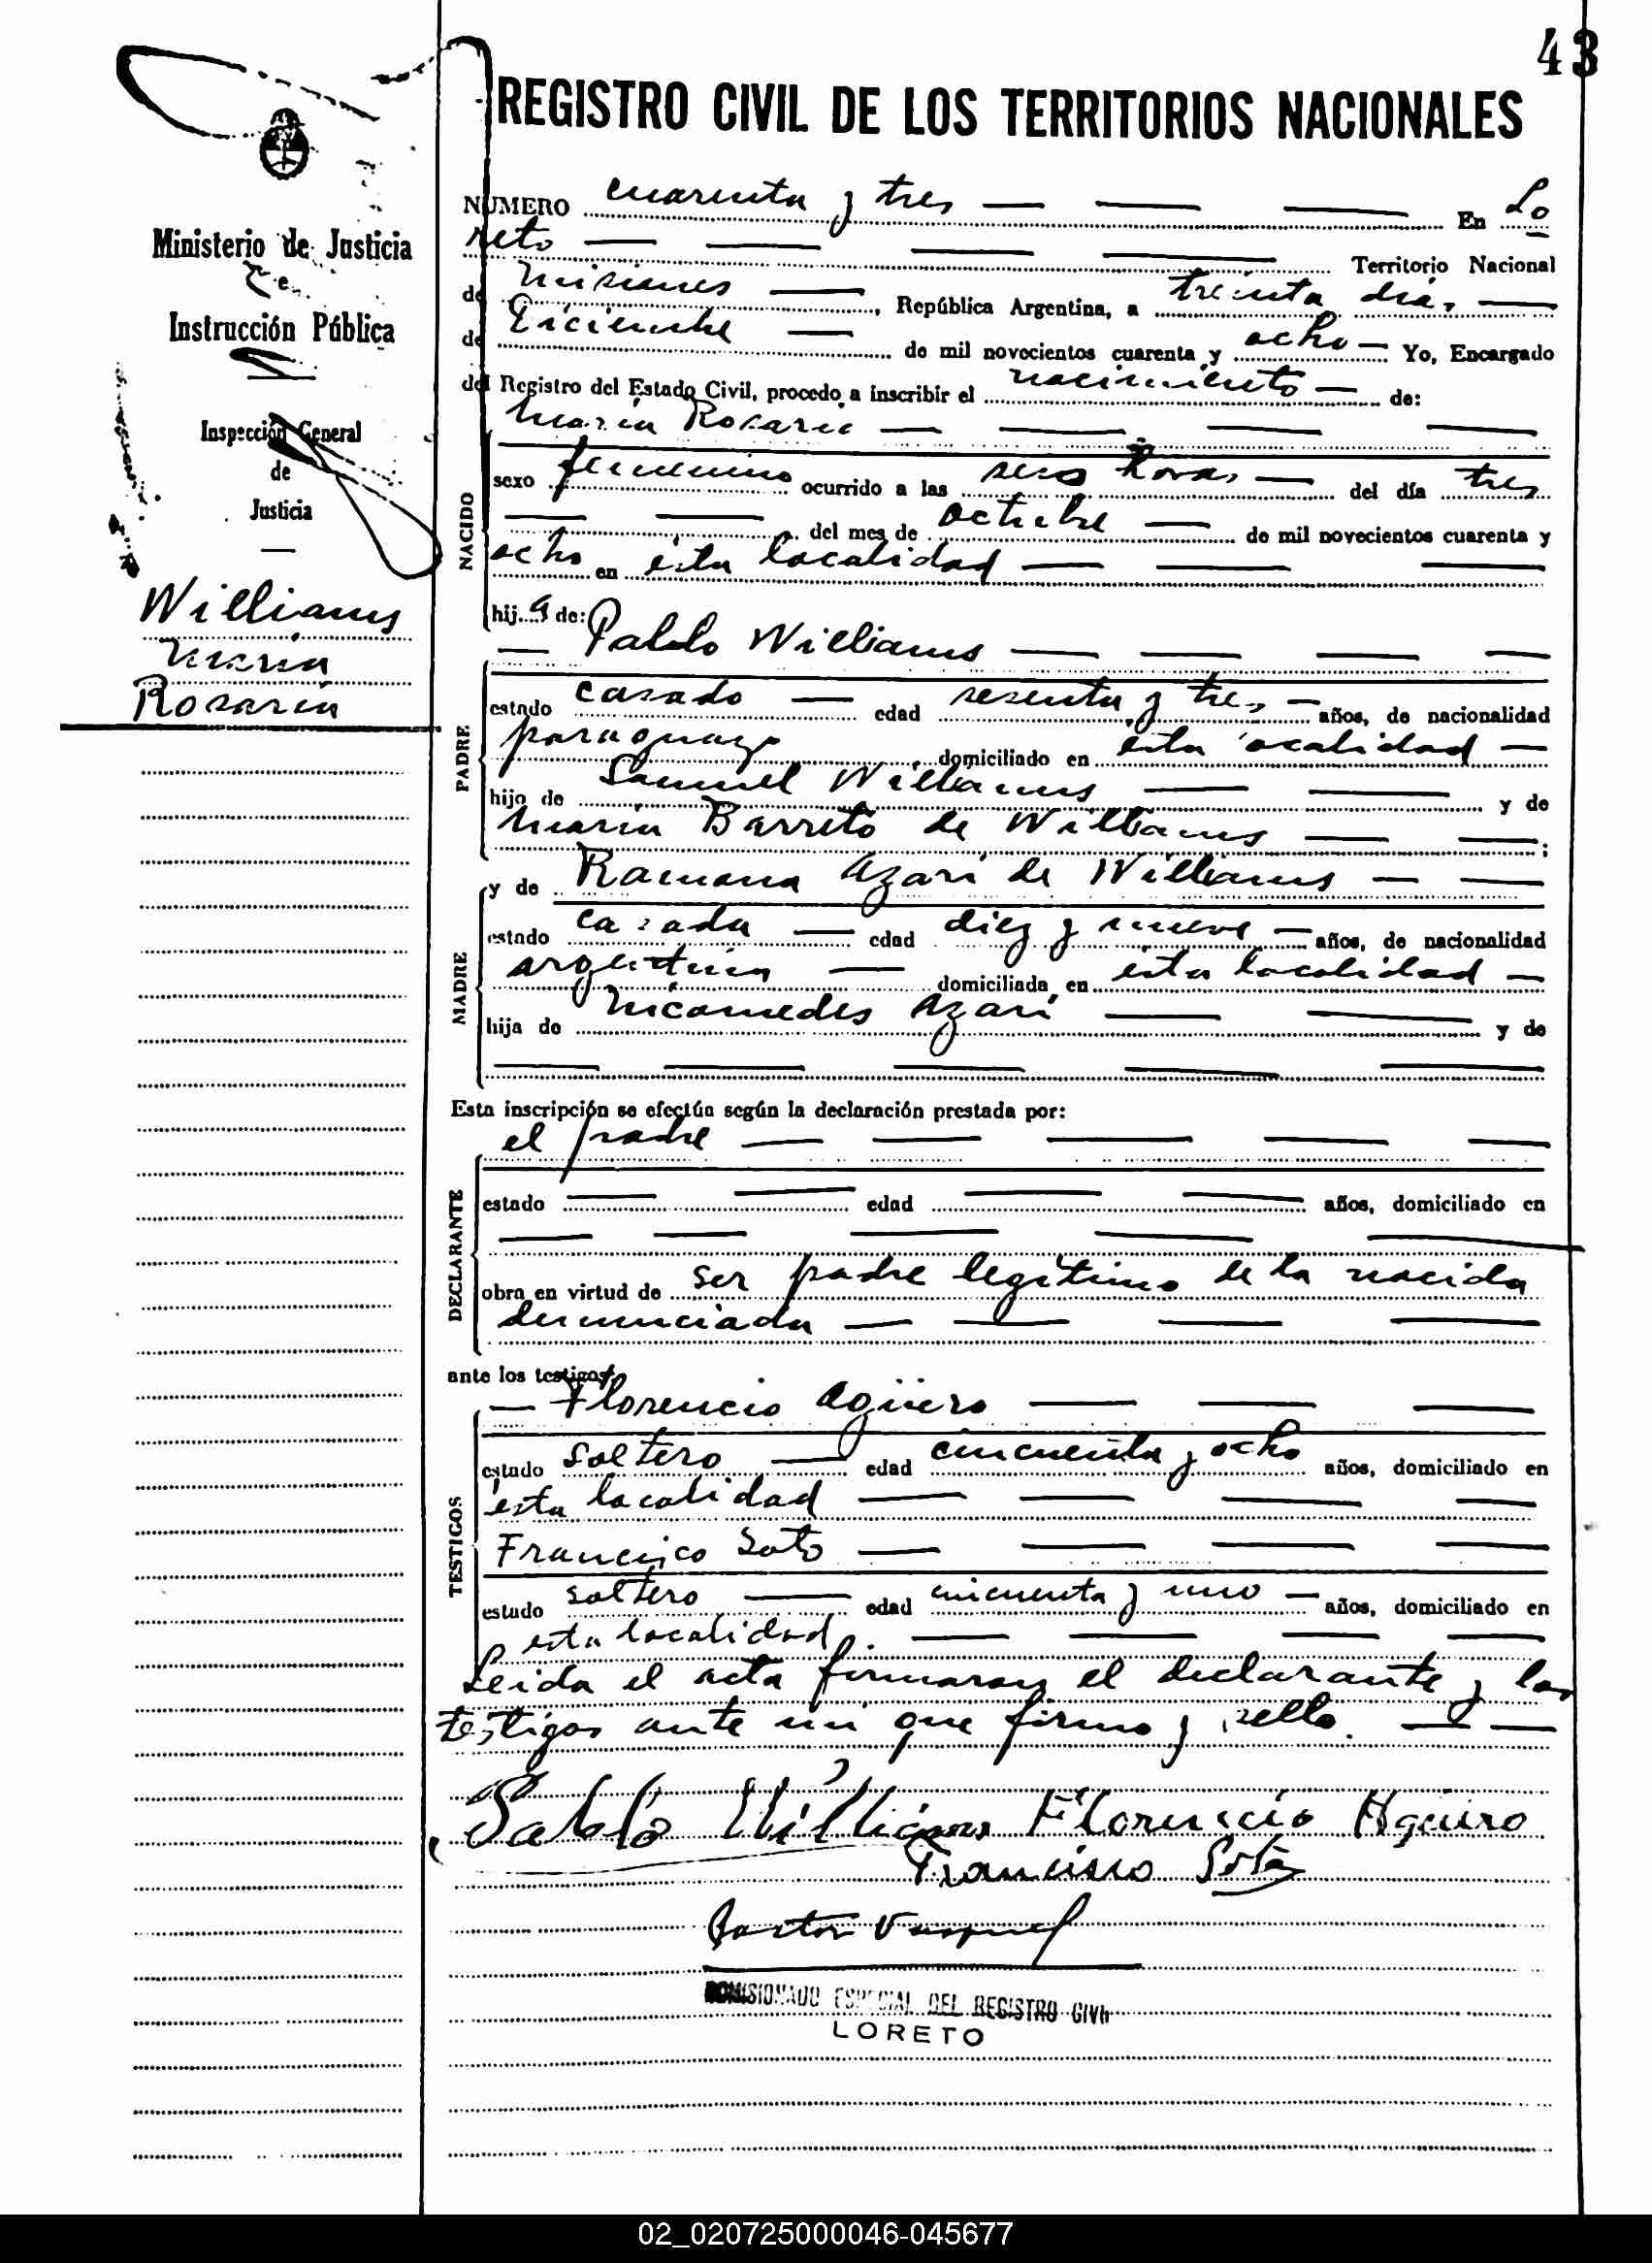 43
REGISTRO CIVIL DE LOS TERRITORIOS NACIONALES
Ministerio de Justicia
e
Instrucción Pública
Inspección General
de
Justicia
Williams
María
Rosaria
NUMERO cuarenta y tres En Lo
reto Territorio Nacional
de Misiones, República Argentina, a treinta días
de Diciembre de mil novecientos cuarenta y ocho Yo, Encargado
del Registro del Estado Civil, procedo a inscribir el nacimiento de:
María Rosaria
NACIDO
sexo femenino ocurrido a las seis horas del día tres
del mes de octubre de mil novecientos cuarenta y
ocho en ésta localidad
hija de:
Pablo Williams
PADRE
estado casado edad sesenta y tres años, de nacionalidad
paraguayo domiciliado en ésta localidad
hijo de Samuel Williams y de
María Barreto de Williams;
MADRE
y de Ramona Azarí de Williams
estado casada edad diez y nueve años, de nacionalidad
argentina domiciliada en ésta localidad
hija de Nicomedes Azarí y de
Esta inscripción se efectúa según la declaración prestada por:
el padre
DECLARANTE
estado edad años, domiciliado en
obra en virtud de ser padre legítimo de la nacida
denunciada
ante los testigos:
TESTIGOS
Florencio Agüero
estado soltero edad cincuenta y ocho años, domiciliado en
ésta localidad
Francisco Soto
estado soltero edad cincuenta y uno años, domiciliado en
esta localidad.
Leida el acta firmaron el declarante y los
testigos ante mi que firmo y sello.
Pablo Williams Florencio Agüero
Francisco Soto
Pastor Vasquez
COMISIONADO ESPECIAL DEL REGISTRO CIVIL
LORETO
02_020725000046-045677